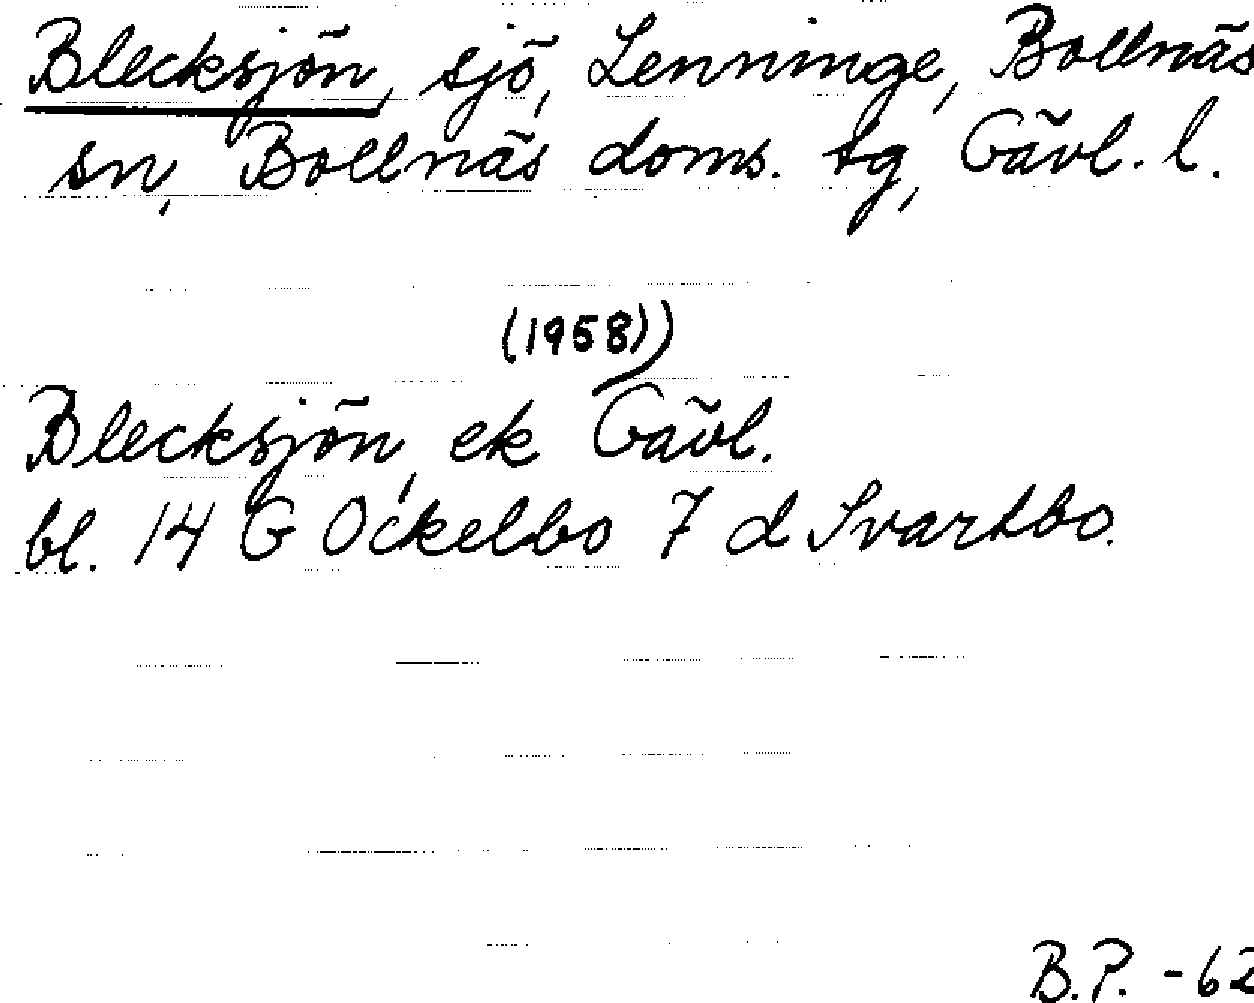 Blecksjön, sjö, Lenninge, Bollnäs
sn, Bollnäs doms. tg, Gävl. l.
(1958))
Blecksjön, ek Gävl.
bl. 14 G Ockelbo 7 d Svartbo.
B.P. -62